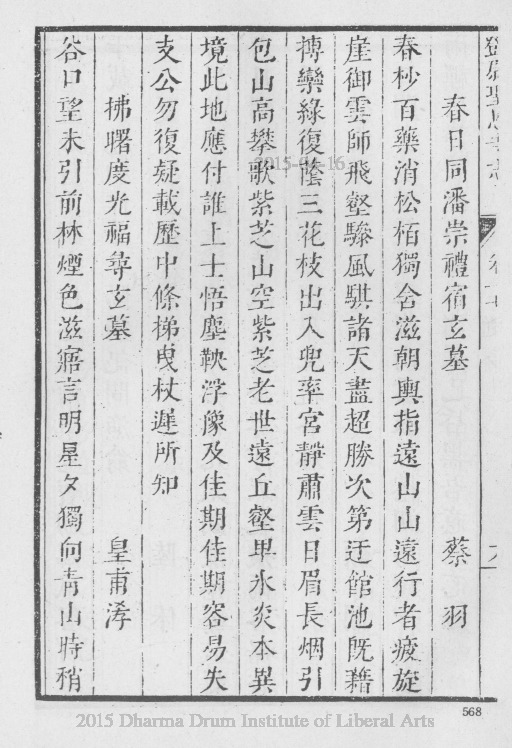 春日同潘崇禮宿玄墓 蔡羽
春杪百藥消松栢獨含滋朝輿指遠山山遠行者疲旋
崖御雲師飛壑驂風騏諸天盡超勝次第迂館池旣藉
摶欒綠復蔭三花枝出入兜率宮靜肅雲日眉長烟引
包山高攀歌紫芝山空紫芝老世遠丘壑畢氷炎本異
境此地應付誰上士悟塵鞅浮豫及佳期佳期容易失
支公勿復疑載歷中條梯曳杖遲所知
拂曙度光福尋玄墓 皇甫涍
谷口望未引前林煙色滋寤言明星夕獨向靑山時稍
2015-04-16
568
2015 Dharma Drum Institute of Liberal Arts